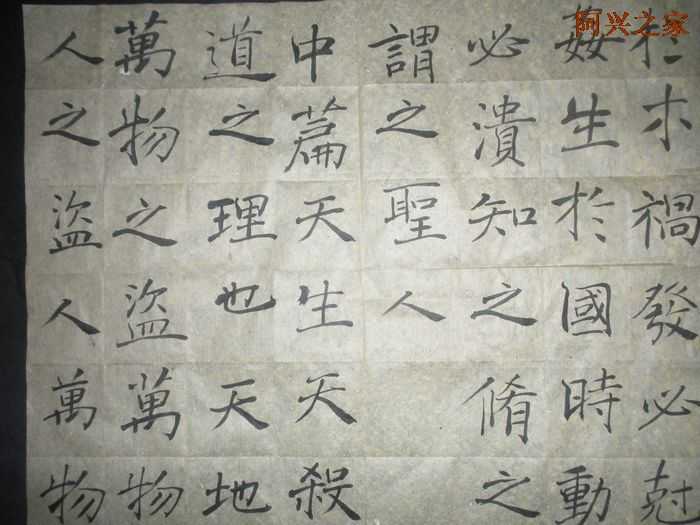 阿兴之家
於木禍發必尅
姦生於國時動
必潰知之脩之
謂之聖人
中篇天生天殺
道之理也天地
萬物之盜萬物
人之盜人萬物